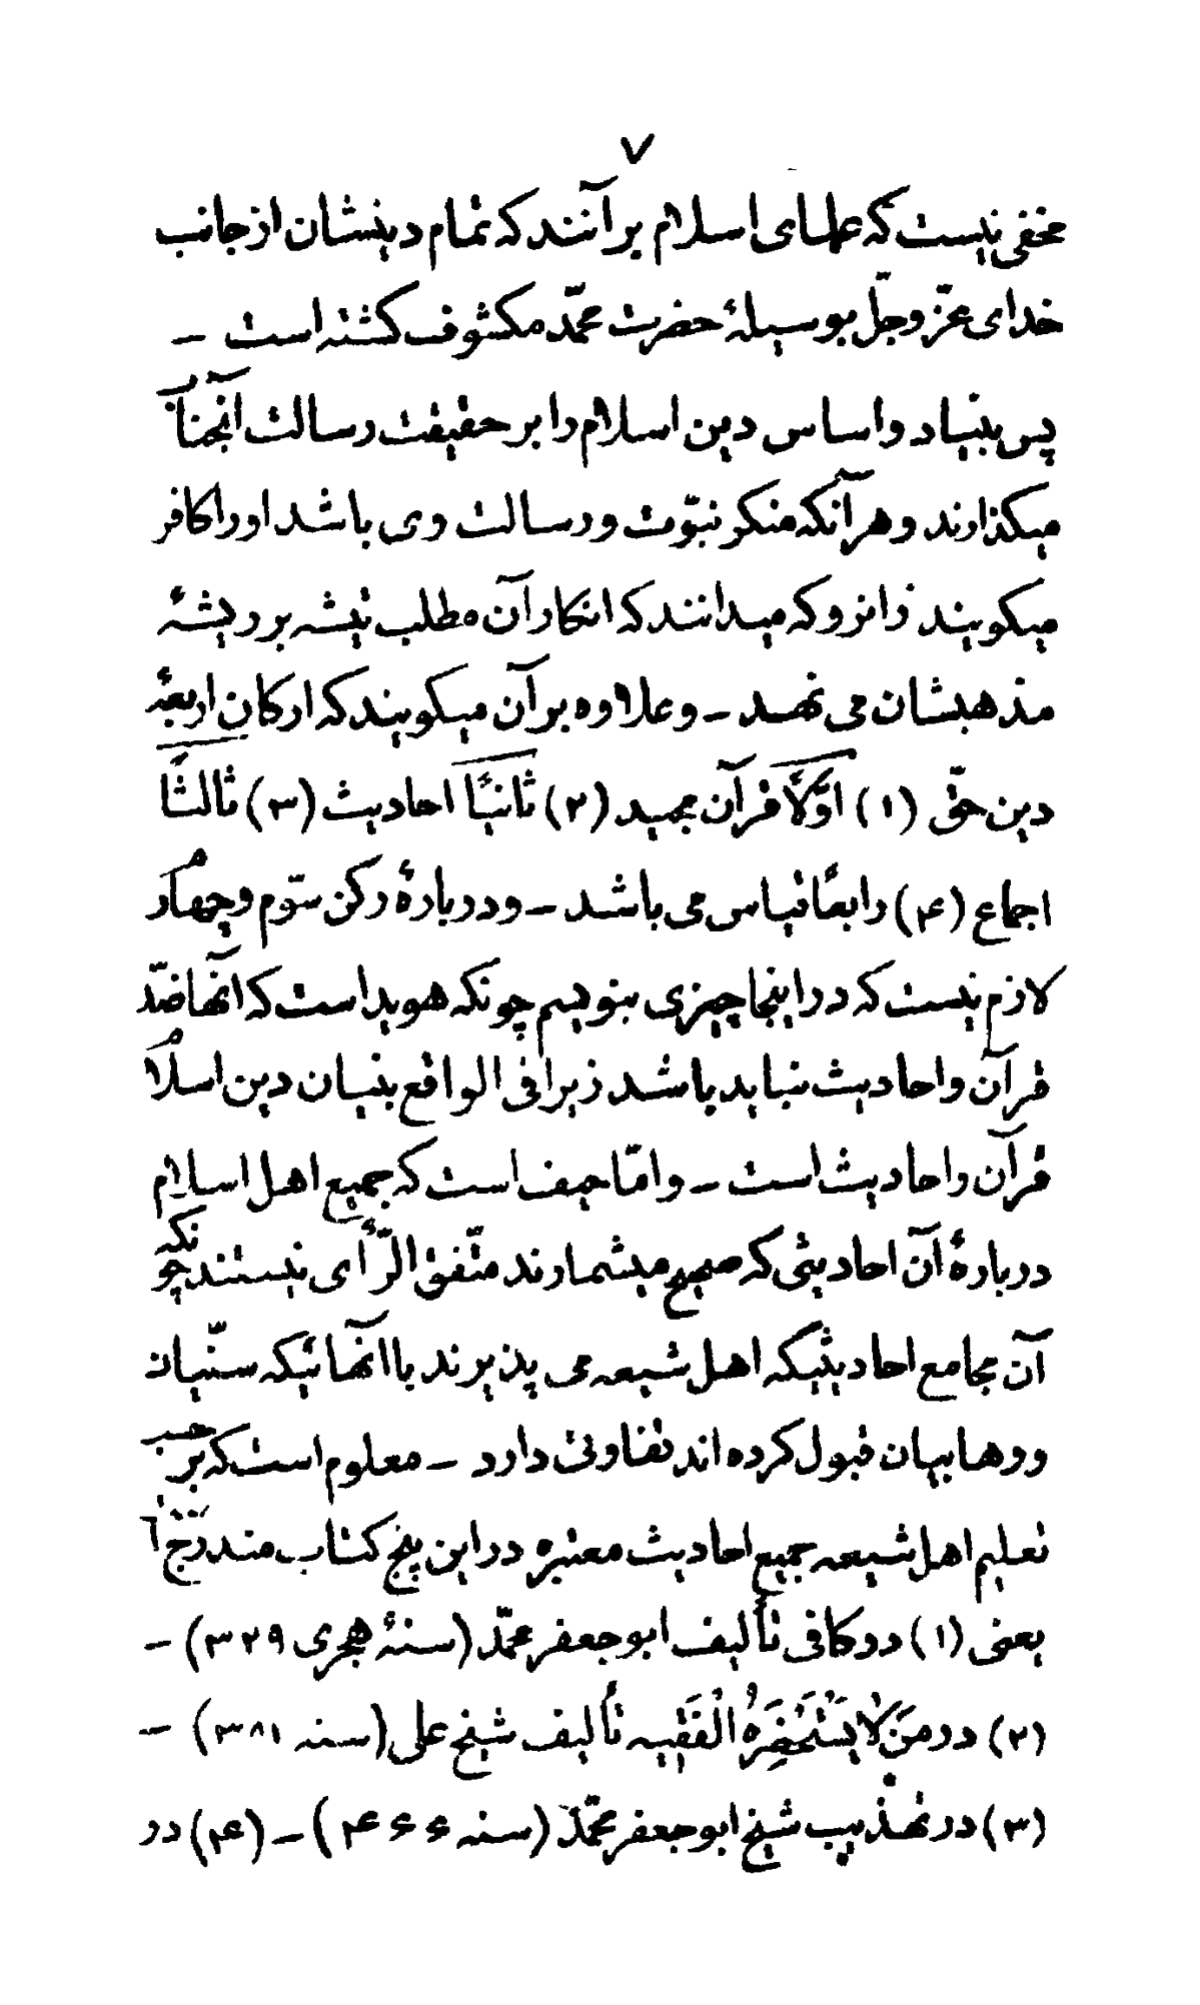 ۷
مخفی نیست که علمای اسلام بر آنند که تمام دینشان از جانب
خدای عزّ و جلّ بوسیلهٔ حضرت محمّد مکشوف کشته است –
پس بنیاد و اساس دین اسلام را بر حقیقت رسالت آنجناب
میکذارند و هر آنکه منکر نبوّت و رسالت وی باشد او را کافر
میکویند زانرو که میدانند که انکار آن مطلب تیشه بر ریشهٔ
مذهبشان می نهد – و علاوه بر آن میکویند که ارکان اربعهٔ
دین حقّ (۱) اوّلاً قرآن مجید (۲) ثانیاً احادیث (۳) ثالثاً
اجماع (۴) رابعاً قیاس می باشد – و دربارهٔ رکن سّوم و چهارم
لازم نیست که در اینجا چیزی بنویسم چونکه هویداست که آنها ضدّ
قرآن و احادیث نباید باشد زیرا فی الواقع بنیان دین اسلام
قرآن و احادیث است – و امّا حیف است که جمیع اهل اسلام
دربارهٔ آن احادیثی که صحیح میشمارند متّفق الرّأی نیستند چونکه
آن مجامع احادیثیکه اهل شیعه می پذیرند با آنهائیکه سنّیان
و وهابیان قبول کرده اند تفاوتی دارد – معلوم است که بر حسب
تعلیم اهل شیعه جمیع احادیث معتبره در این پنج کتاب مندرج است
یعنی (۱) در کافی تألیف ابو جعفر محمّد (سنهٔ هجری ۳۲۹) –
(۲) در مَنْ لا یَسْتَحْضِرُهُ الْفَقیه تألیف شیخ علی (سنه ۳۸۱) –
(۳) در تهذیب شیخ ابو جعفر محمّد (سنه ۴۶۶) – (۴) در